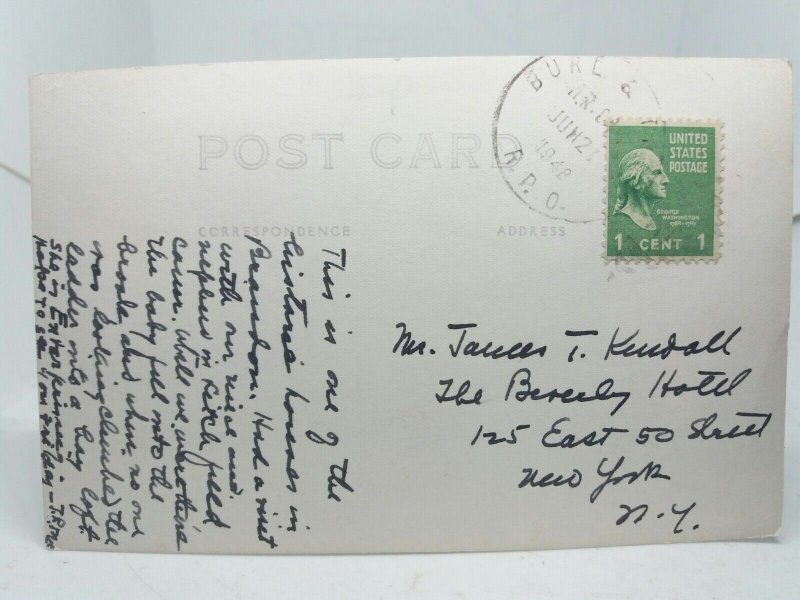 POST CARD
CORRESPONDENCE
ADDRESS
BURL. &
JUN 21
1948
R.P.O.
UNITED
STATES
POSTAGE
GEORGE
WASHINGTON
1 CENT 1
Mr. James T. Kendall
The Beverly Hotel
125 East 50 Street
New York
N.Y.
This is one of the
historic houses in
Brandon. Had a visit
with our niece and
nephew in Pitch
. While we were there
the baby fell into the
brook and when no one
was looking climbed the
ladder into a hay loft.
She is
to see you